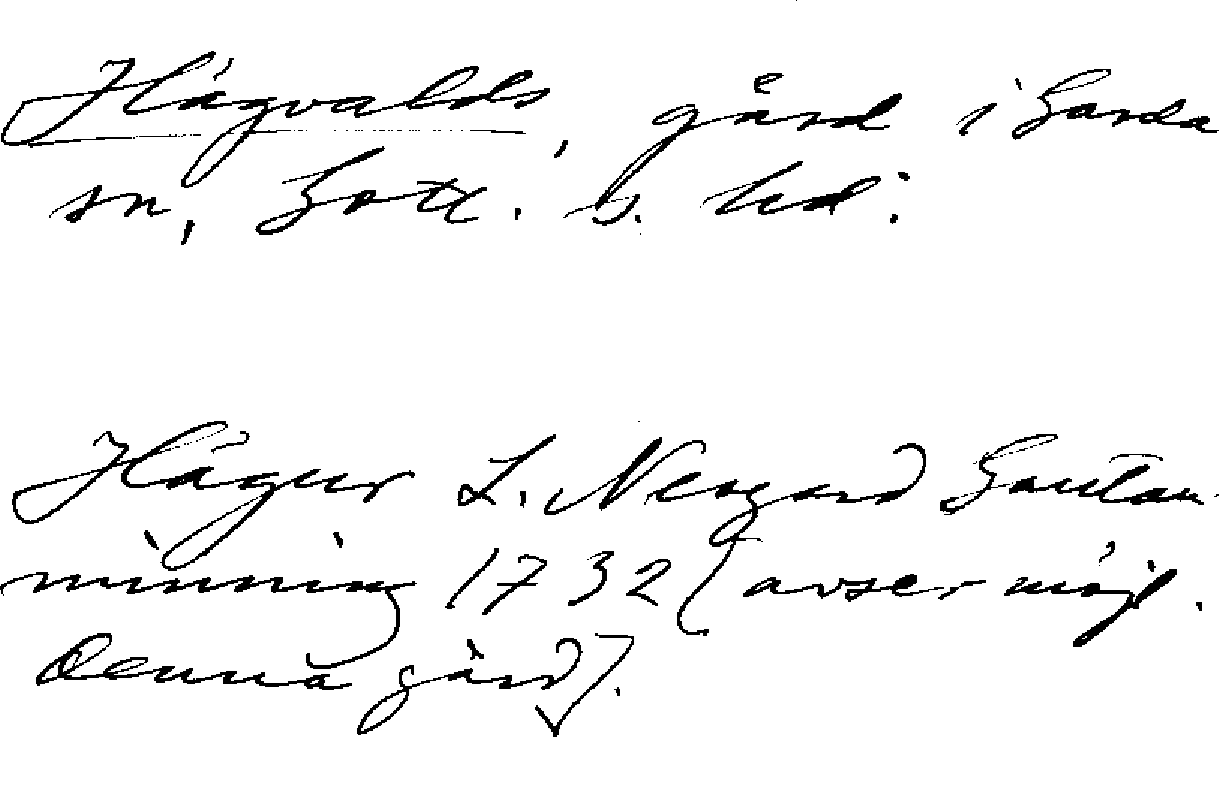 Hägvalds, gård i Garda
sn, Gotl. s. hd.
Hägur L. Nergard Gautau
minning 1732 (avser möjl.
denna gård).